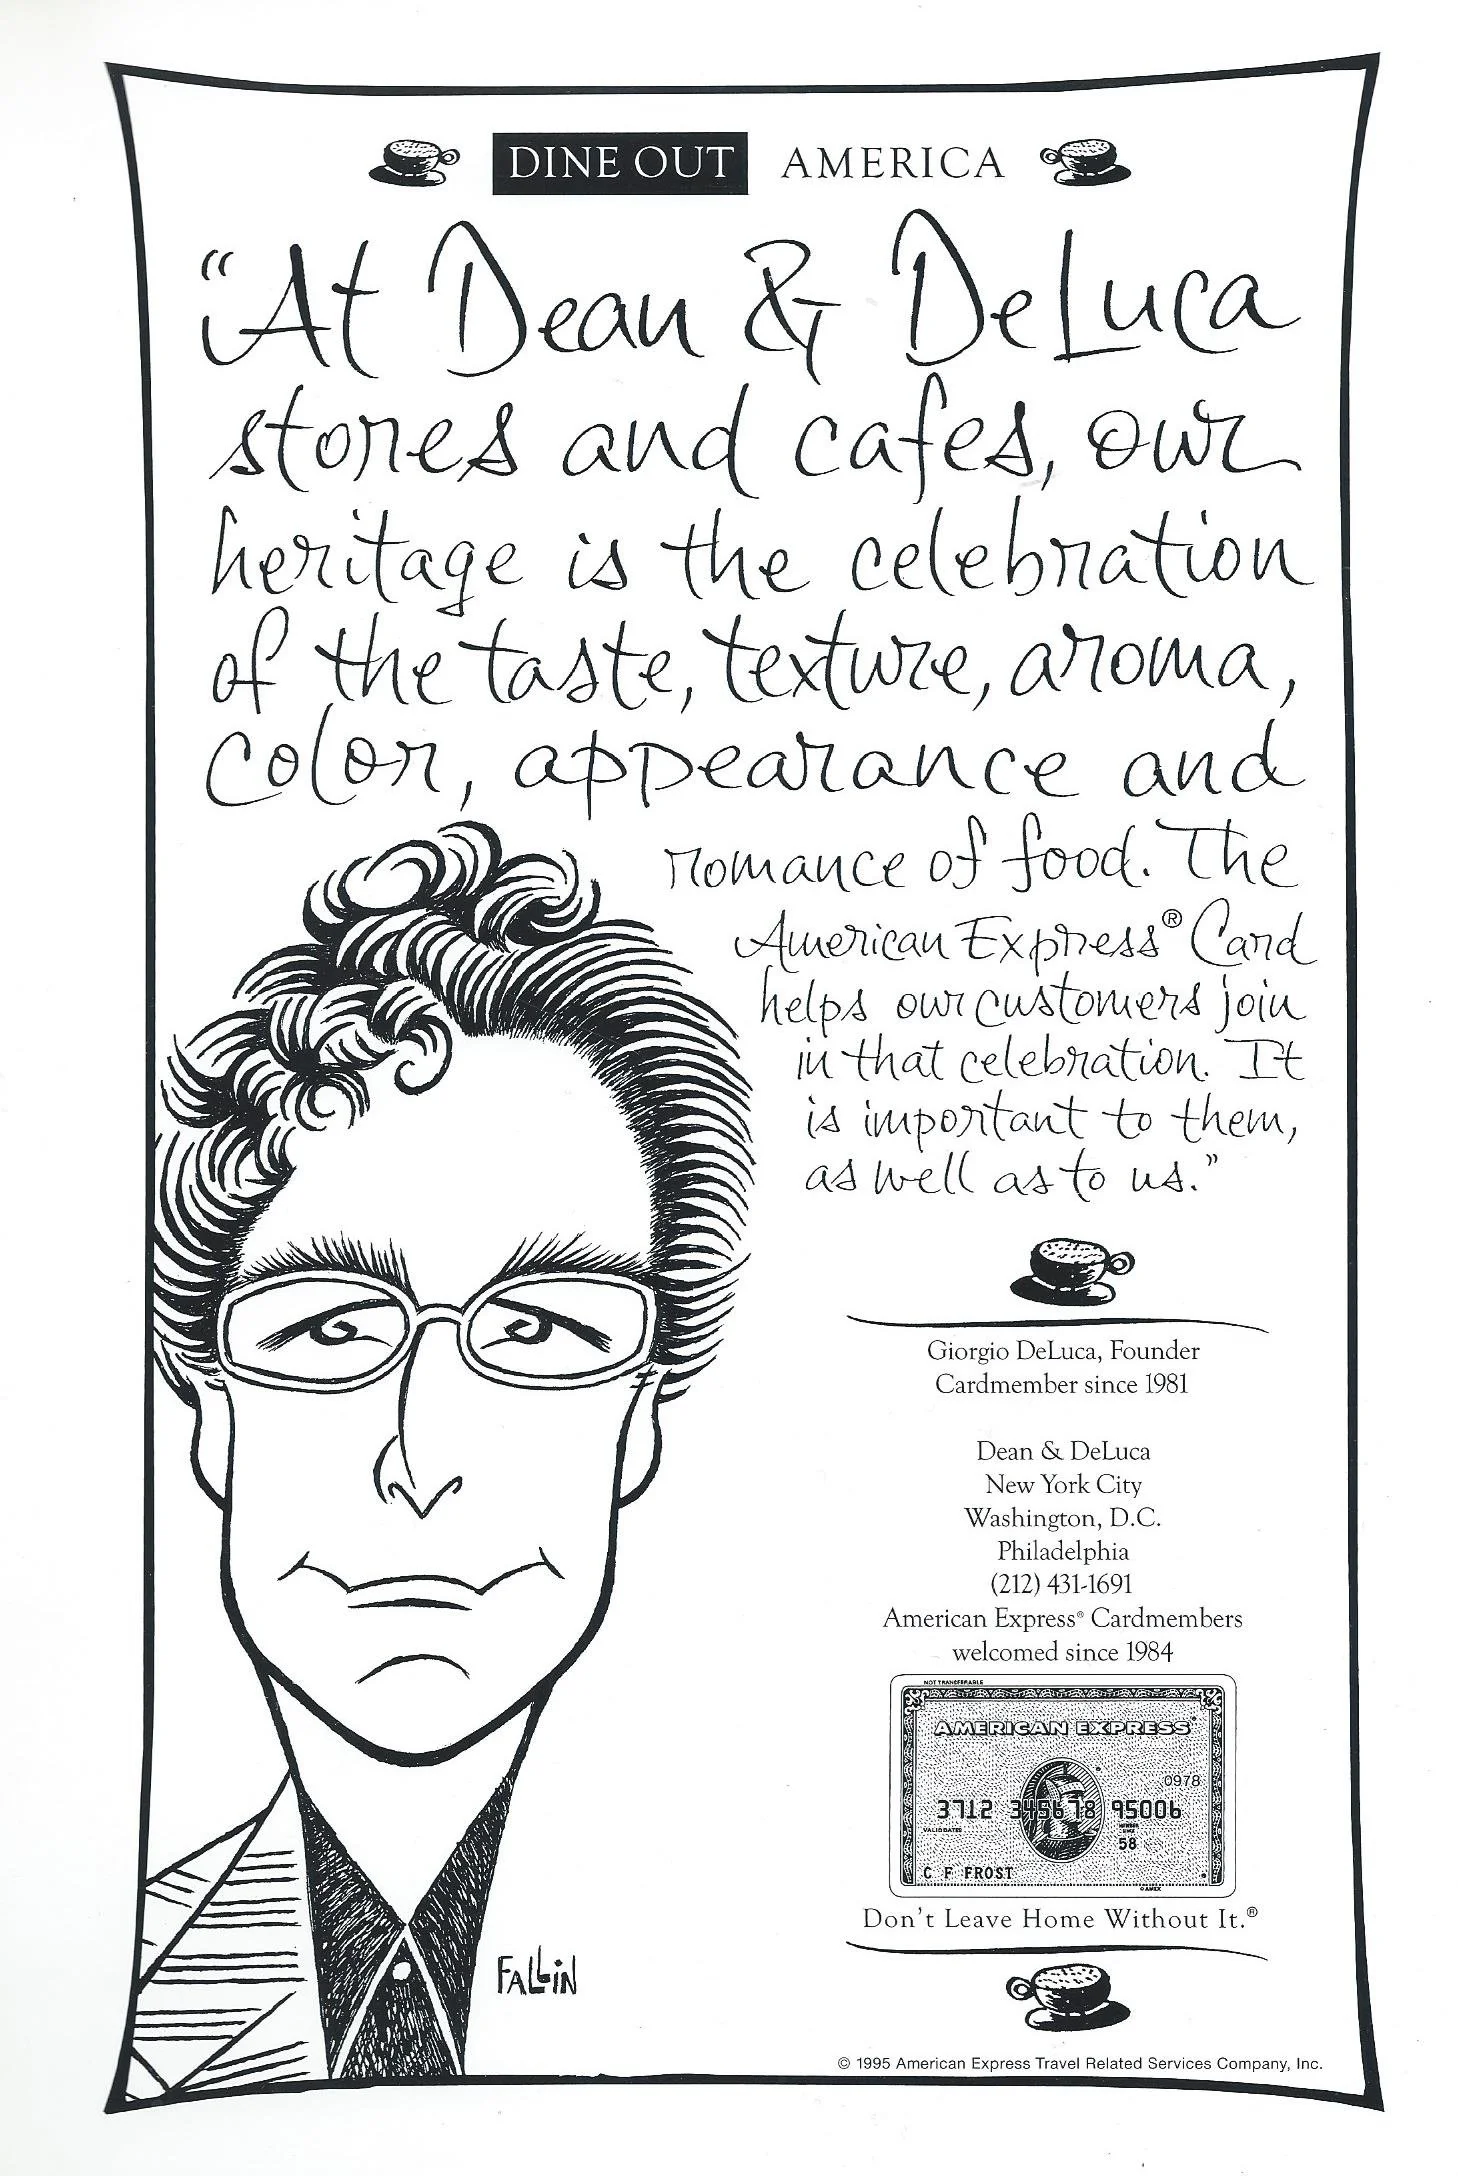 DINE OUT AMERICA
“At Dean & DeLuca
stores and cafes, our
heritage is the celebration
of the taste, texture, aroma,
color, appearance and
romance of food. The
American Express® Card
helps our customers join
in that celebration. It
is important to them,
as well as to us.”
Giorgio DeLuca, Founder
Cardmember since 1981
Dean & DeLuca
New York City
Washington, D.C.
Philadelphia
(212) 431-1691
American Express® Cardmembers
welcomed since 1984
NOT TRANSFERABLE
AMERICAN EXPRESS®
0978
3712 345678 95006
VALID DATES
MEMBER SINCE
58
C F FROST
© AMEX
Don't Leave Home Without It.®
FALLIN
© 1995 American Express Travel Related Services Company, Inc.